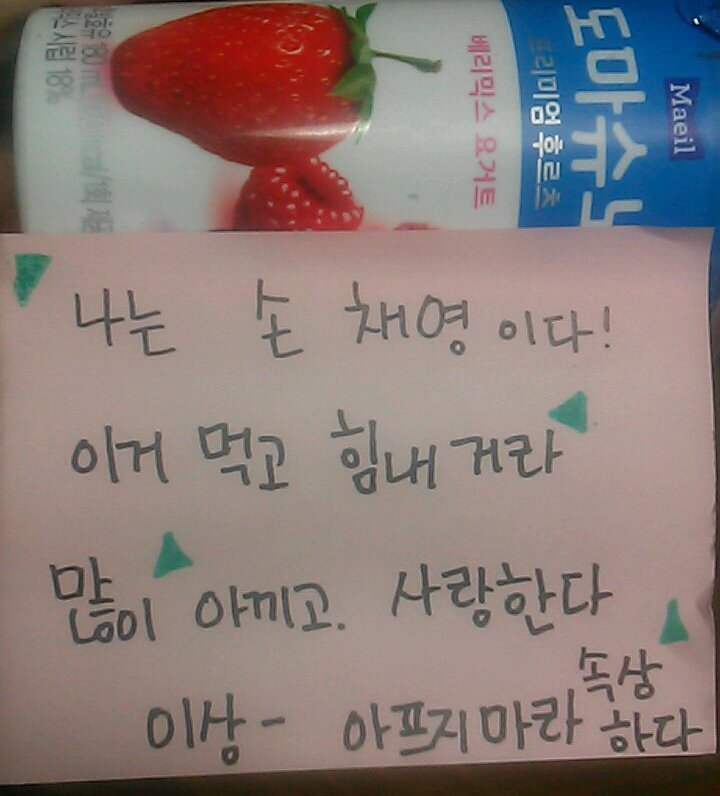 Maeil
도마슈노
프리미엄 후르츠
베리믹스 요거트
나는 손 채영 이다!
이거 먹고 힘내거라
많이 아끼고. 사랑한다
이상- 아프지마라 속상하다